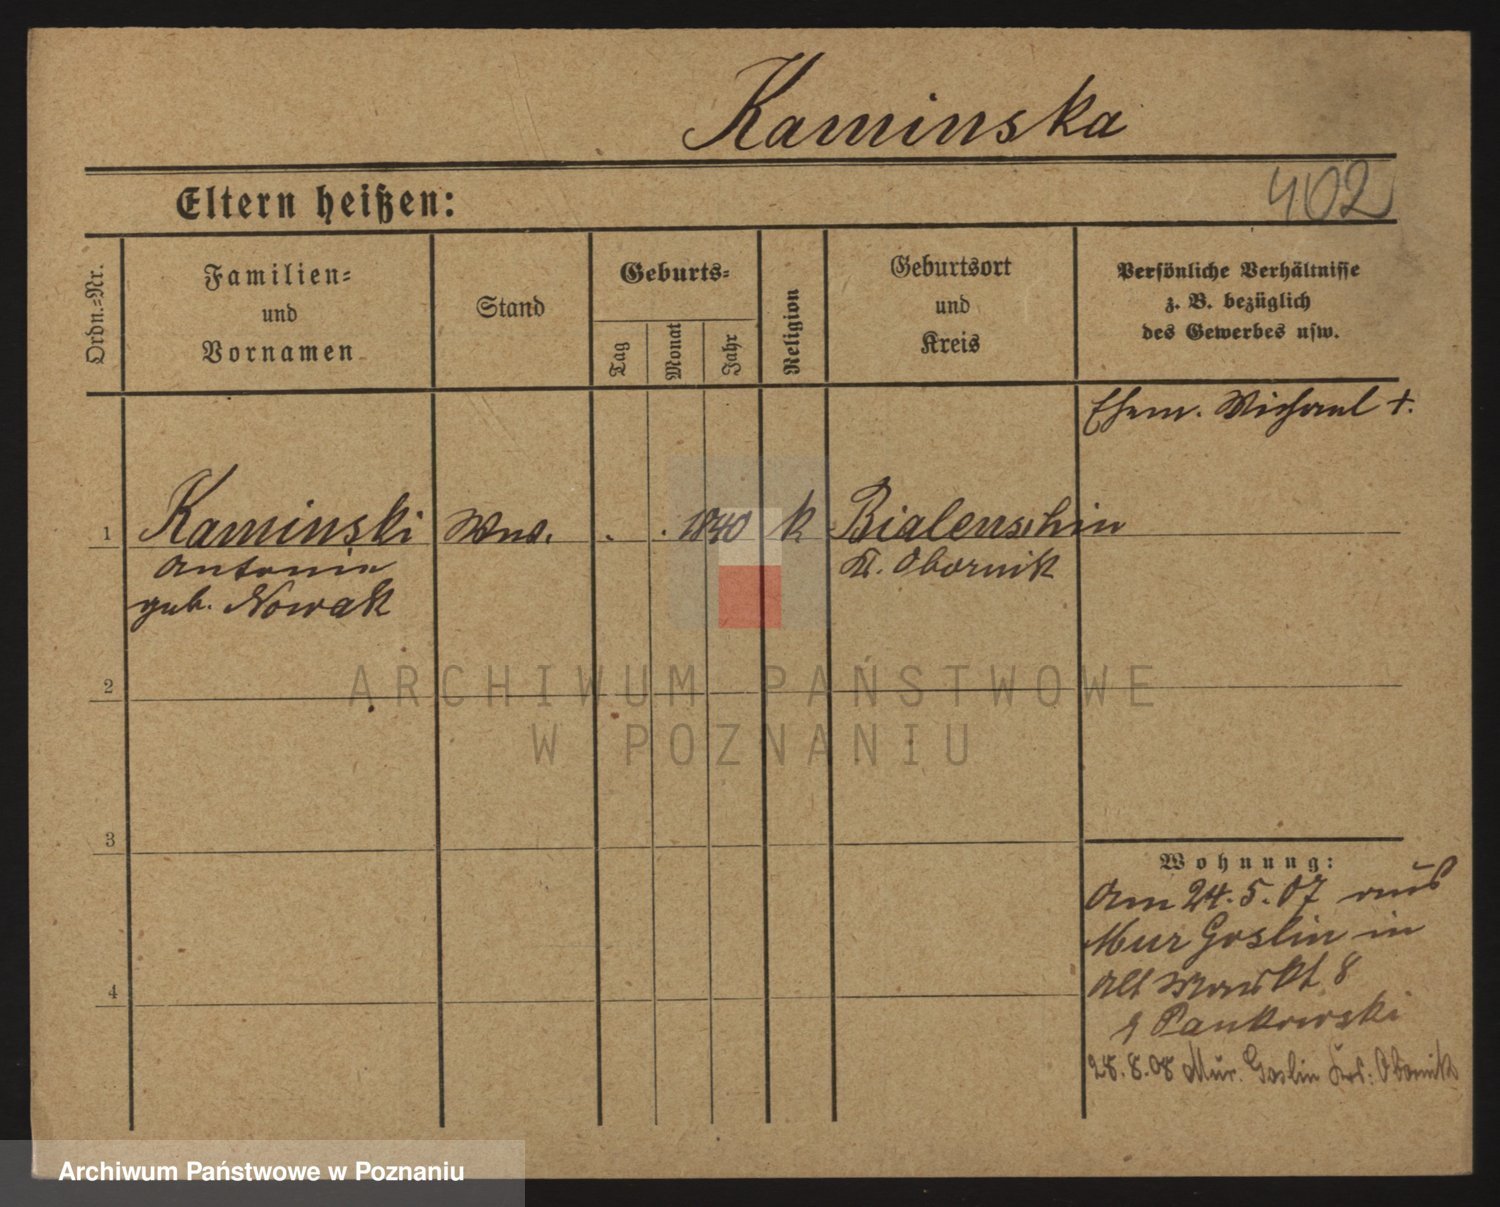 Kaminska
Eltern heißen:
402
Ordn.=Nr.
Familien=
und
Vornamen
Stand
Geburts=
Tag
Monat
Jahr
Religion
Geburtsort
und
Kreis
Persönliche Verhältnisse
z. B. bezüglich
des Gewerbes usw.
Ehem. Michael †.
1
Kaminski
Antonie
geb. Nowak
Wwe.
. . 1840
k
Bialenschin
Kr. Obornik
ARCHIWUM PAŃSTWOWE
W POZNANIU
2
3
4
Wohnung:
Am 24.5.07 aus
Mur Goslin in
Alt Markt 8
Pankowski
28.8.08 Mur. Goslin Krs. Obornik
Archiwum Państwowe w Poznaniu